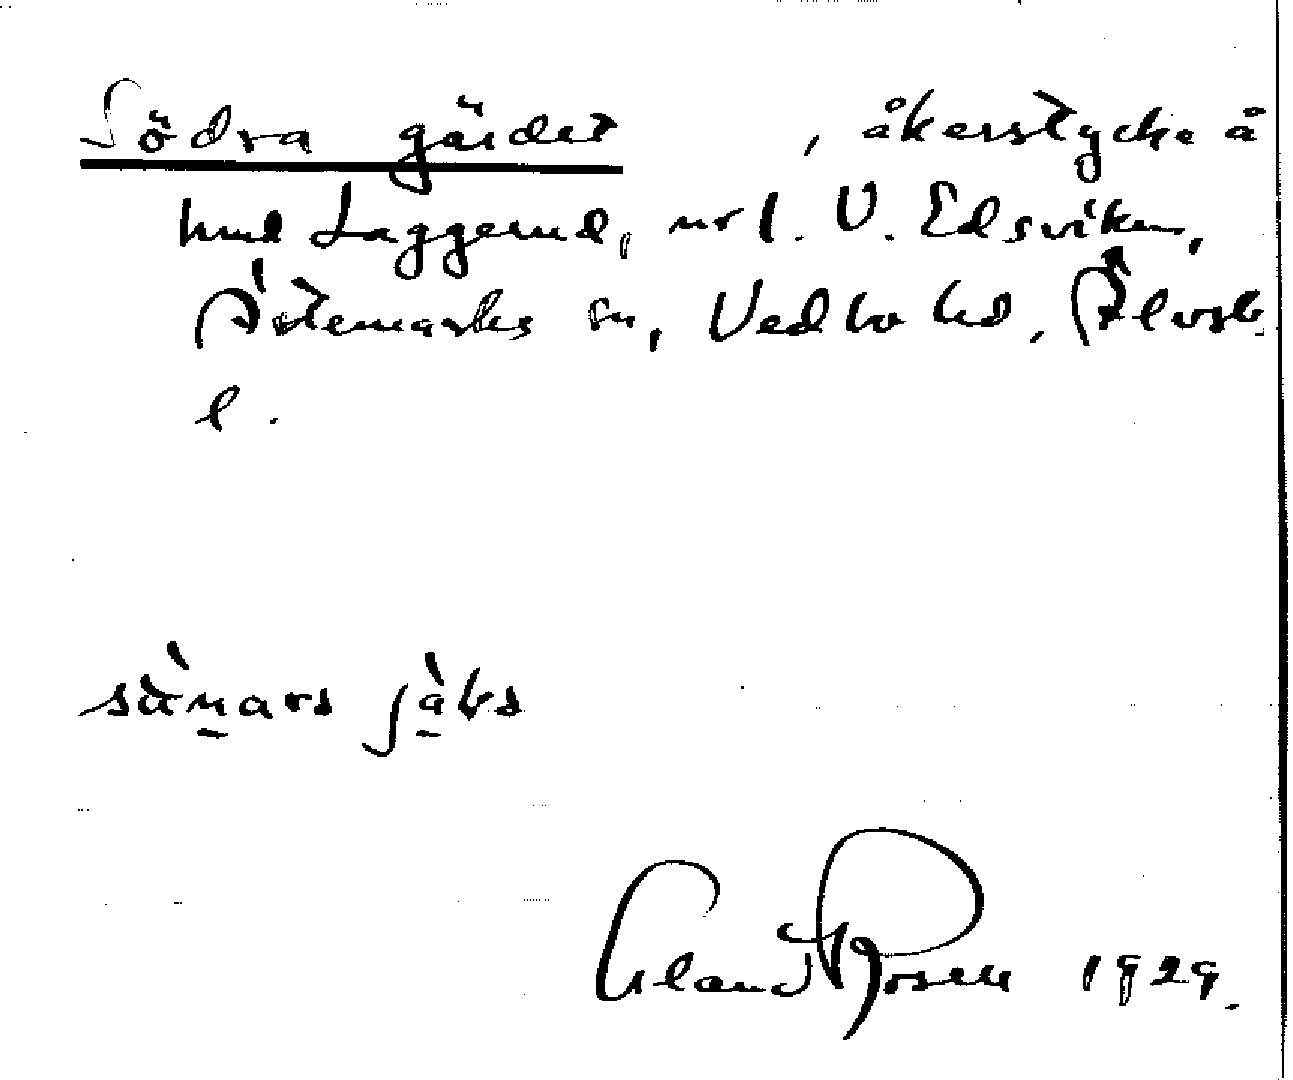 Södra gärdet , åkerstycke å
hmd Laggerud, nr 1. V. Edsviken,
Ärtemarks sn, Vedbo hd, Älvsb.
l.
Erland Rosell 1929.